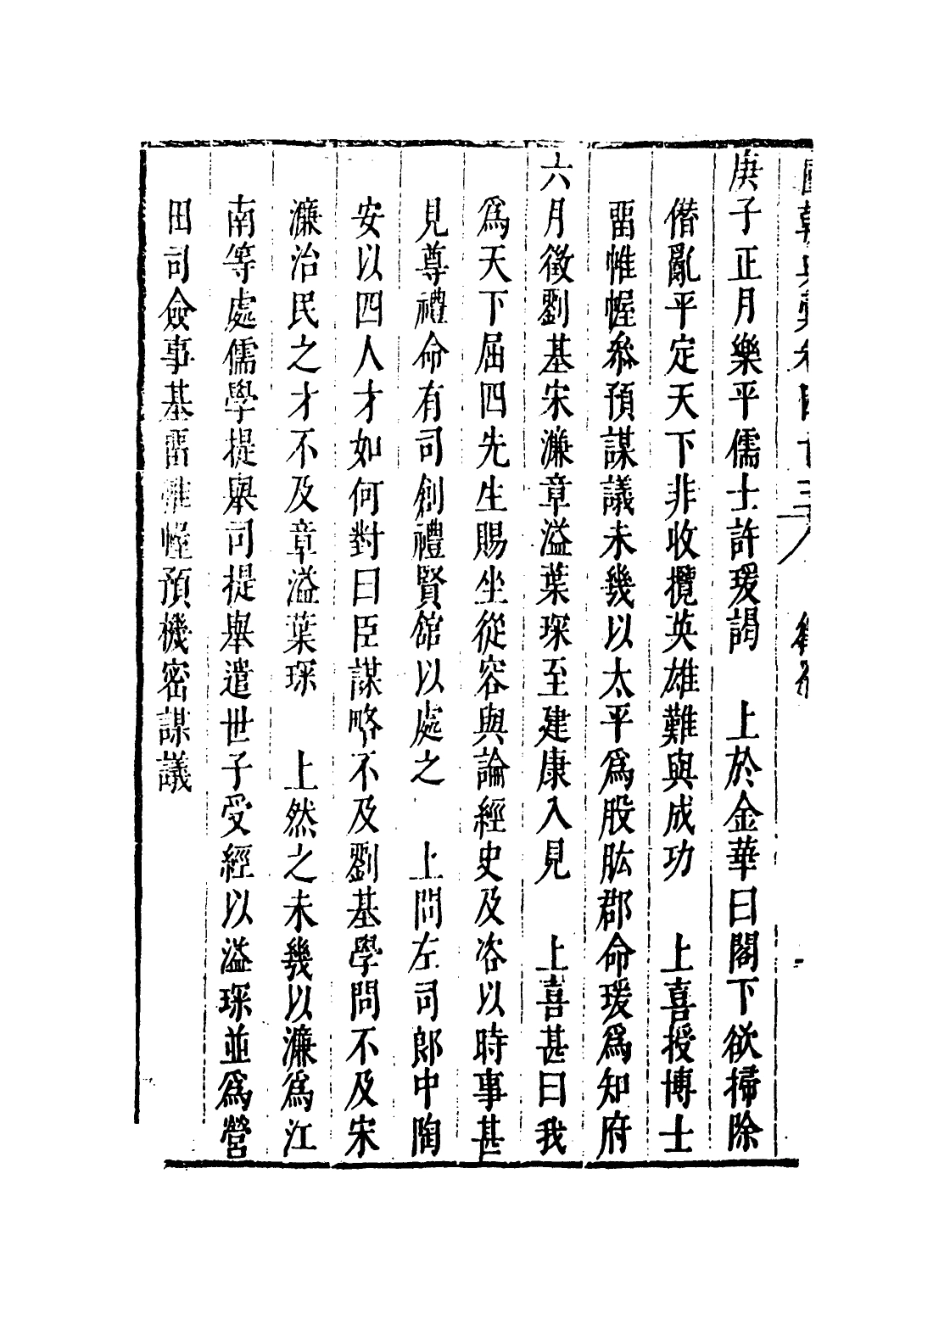 國朝典彙卷四十三
庚子正月樂平儒士許瑗謁　上於金華曰閣下欲掃除
僭亂平定天下非收攬英雄難與成功　上喜授博士
畱帷幄叅預謀議未幾以太平爲股肱郡命瑗爲知府
六月徵劉基宋濂章溢葉琛至建康入見　上喜甚曰我
爲天下屈四先生賜坐從容與論經史及咨以時事甚
見尊禮命有司創禮賢館以處之　上問左司郎中陶
安以四人才如何對曰臣謀略不及劉基學問不及宋
濂治民之才不及章溢葉琛　上然之未幾以濂爲江
南等處儒學提舉司提舉遣世子受經以溢琛並爲營
田司僉事基畱帷幄預機密謀議